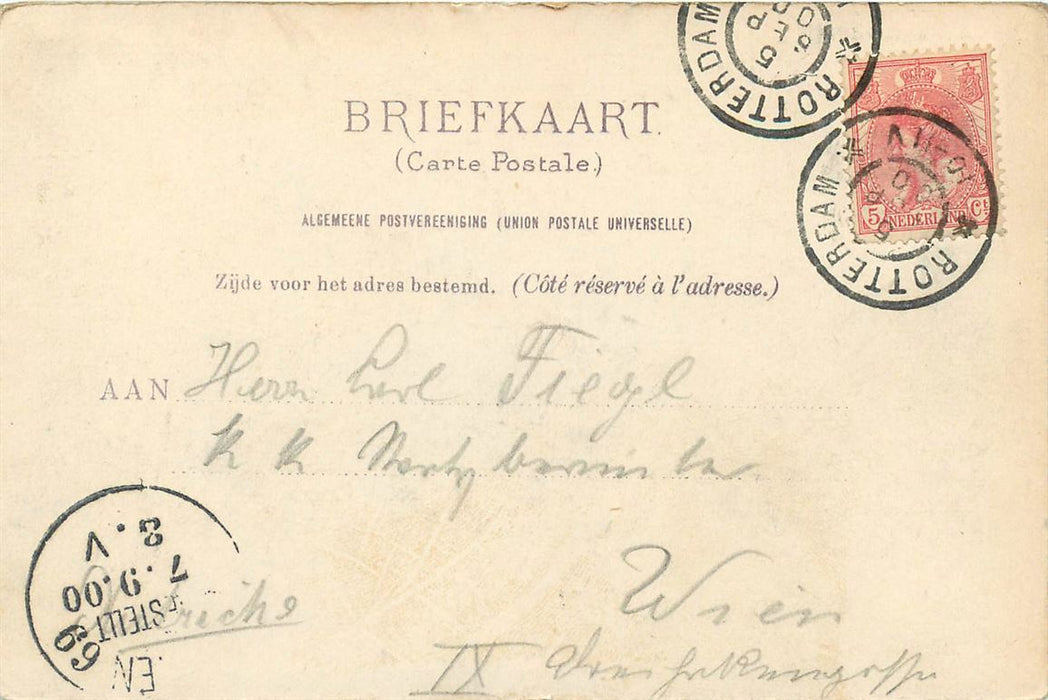 ROTTERDAM
5 SEP
BRIEFKAART.
(Carte Postale.)
5 NEDERLAND Ct
ROTTERDAM
ALGEMEENE POSTVEREENIGING (UNION POSTALE UNIVERSELLE)
Zijde voor het adres bestemd. (Côté réservé à l'adresse.)
AAN Herrn Carl Fiegl
k k
Wien
IX
8. V
7.9.00
BESTELLT
69